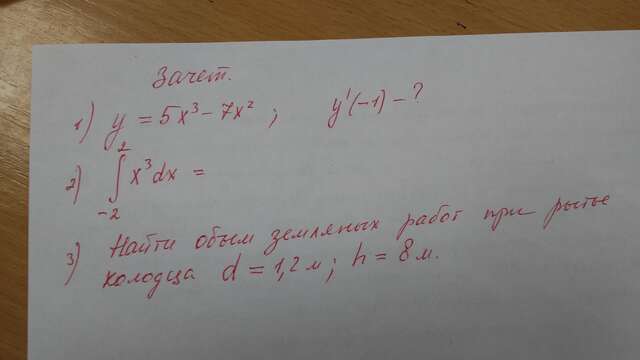 Зачет.
1) y = 5x³ - 7x² ; y'(-1) - ?
2) ∫₋₂² x³dx =
3) Найти объем земляных работ при рытье
колодца d = 1,2 м; h = 8 м.